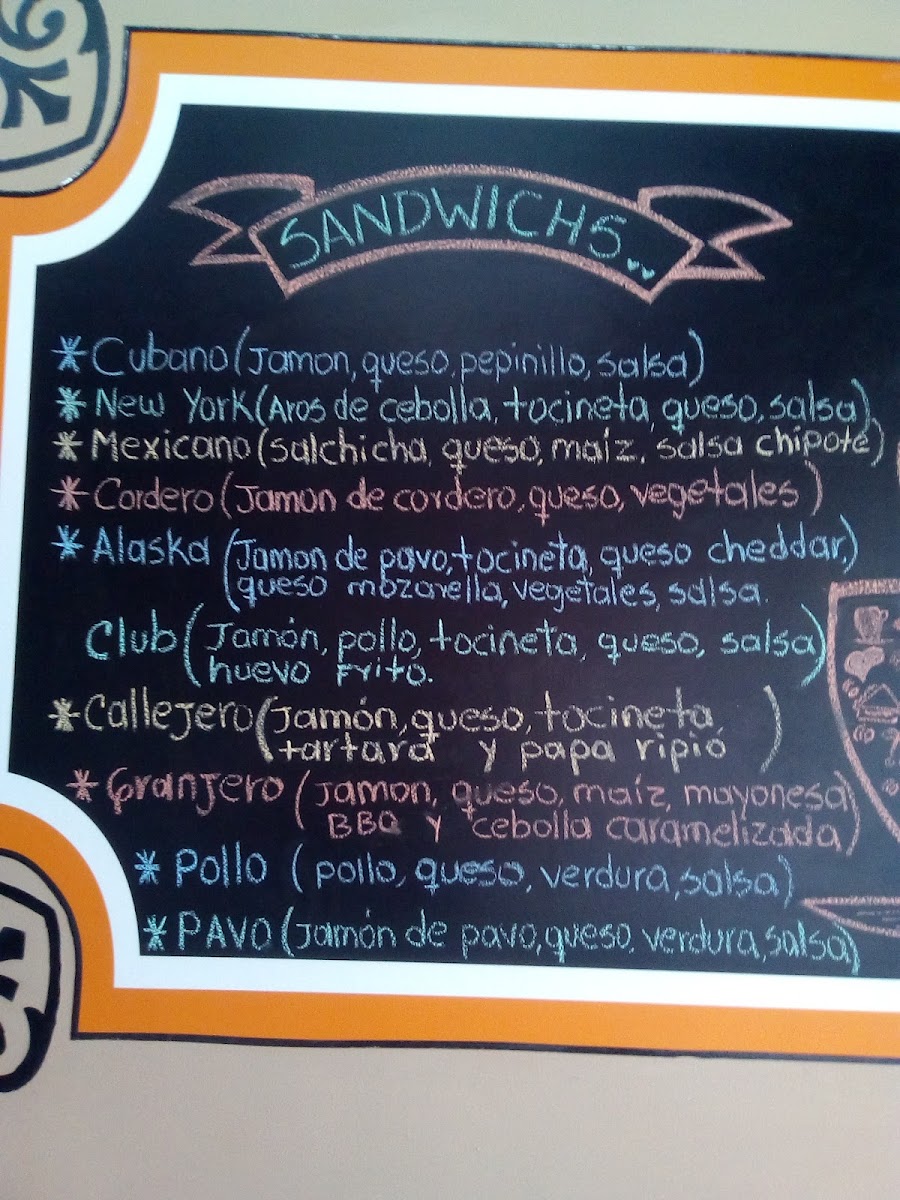 SANDWICHS..
* Cubano (Jamon, queso, pepinillo, salsa)
* New York (Aros de cebolla, tocineta, queso, salsa)
* Mexicano (salchicha, queso, maíz, salsa chipote)
* Cordero (Jamon de cordero, queso, vegetales)
* Alaska (Jamon de pavo, tocineta, queso cheddar,)
queso mozarella, vegetales, salsa.
Club (Jamón, pollo, tocineta, queso, salsa)
huevo Frito.
* Callejero (Jamón, queso, tocineta )
tartara y papa ripio
* Granjero (Jamon, queso, maíz, mayonesa)
BBQ y cebolla caramelizada)
* Pollo (pollo, queso, verdura, salsa)
* PAVO (Jamón de pavo, queso. verdura, salsa)